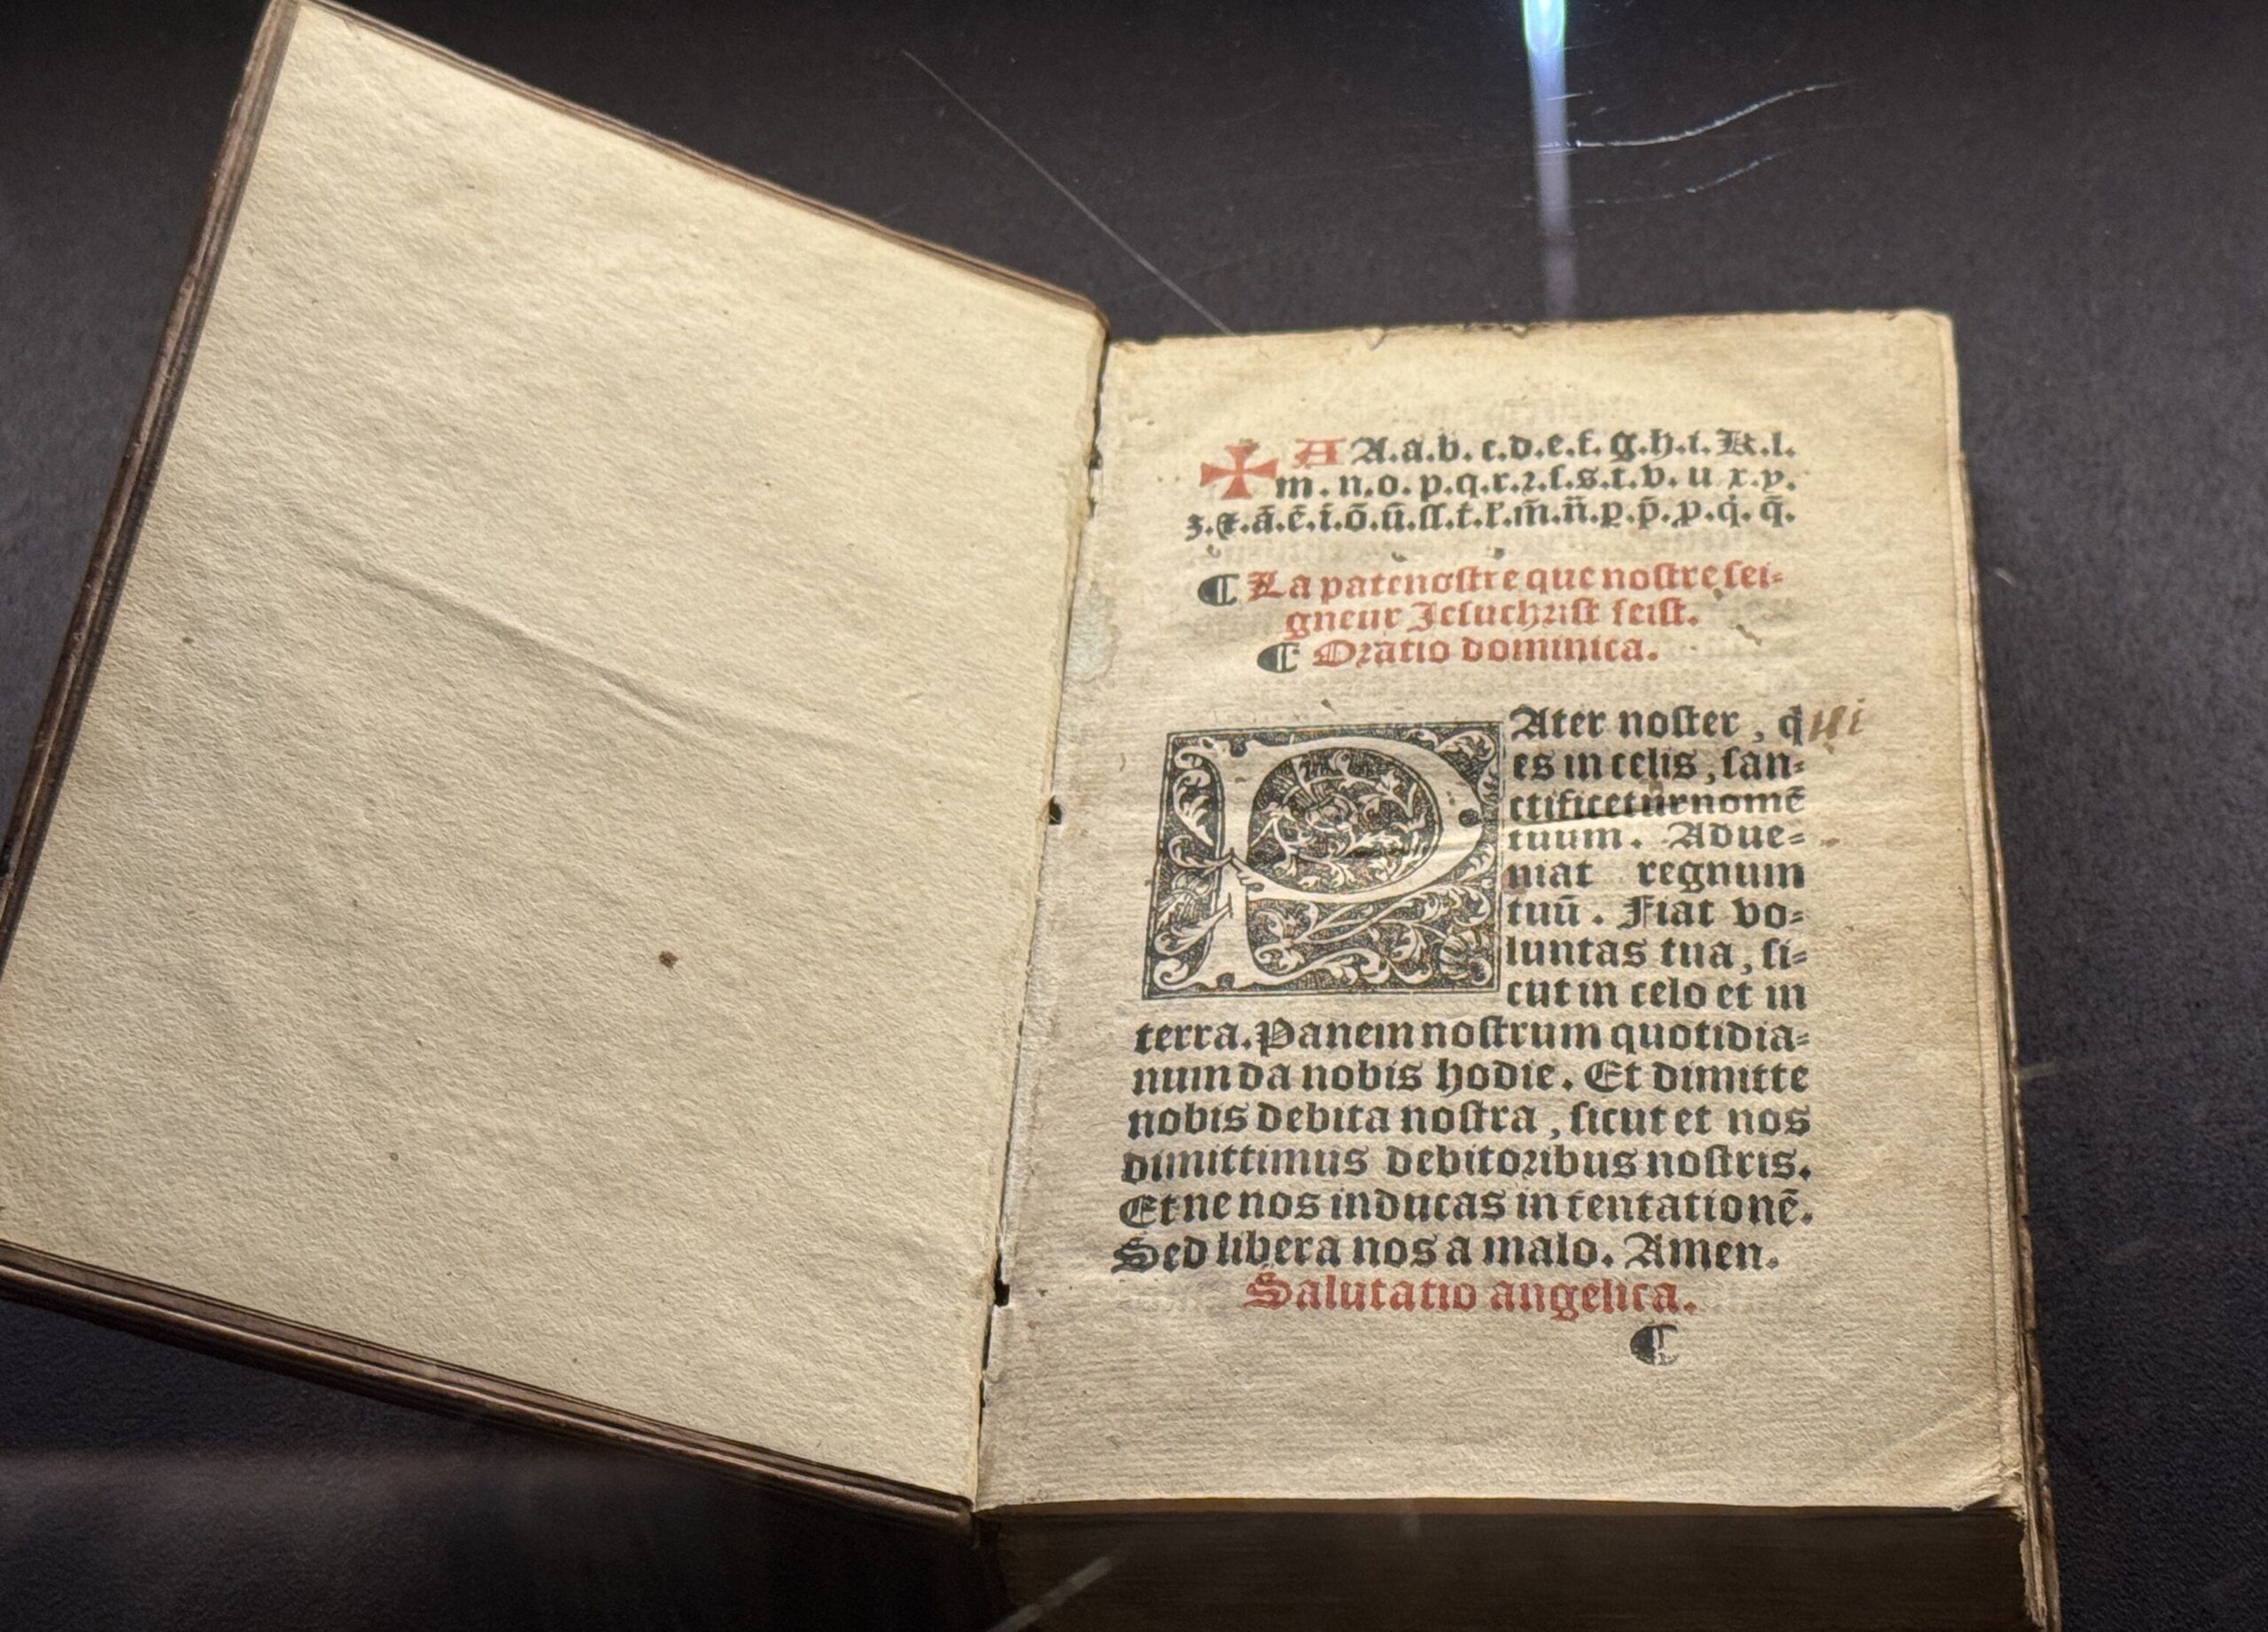 ✠ A A.a.b.c.d.e.f.g.h.i.k.l.
m.n.o.p.q.r.ꝛ.ſ.s.t.v.u x.y.
ꝫ.⁊.ā.ē.ī.ō.ū.ſſ.t̄.r̄.m̄.n̄.ꝑ.p̄.ꝓ.q̇.q̄.
¶ La patenoſtre que noſtre ſei⸗
gneur Jeſuchꝛiſt feiſt.
¶ Oꝛatio dominica.
PAter noſter, q̇ ui
es in celis, ſan⸗
ctificetur nomē
tuum. Adue⸗
niat regnum
tuū. Fiat vo⸗
luntas tua, ſi⸗
cut in celo et in
terra. Panem noſtrum quotidia⸗
num da nobis hodie. Et dimitte
nobis debita noſtra, ſicut et nos
dimittimus debitoꝛibus noſtris.
Et ne nos inducas in tentationē.
Sed libera nos a malo. Amen.
Salutatio angelica.
¶